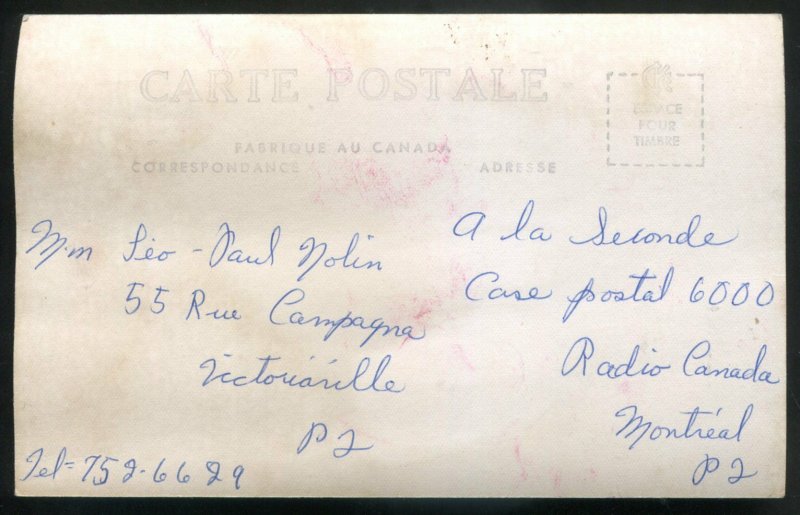 CARTE POSTALE
ESPACE
POUR
TIMBRE
FABRIQUE AU CANADA
CORRESPONDANCE
ADRESSE
M.m Léo-Paul Nolin
55 Rue Campagna
Victoriaville
PQ
Tel=752-6629
A la Seconde
Case postal 6000
Radio Canada
Montréal
PQ